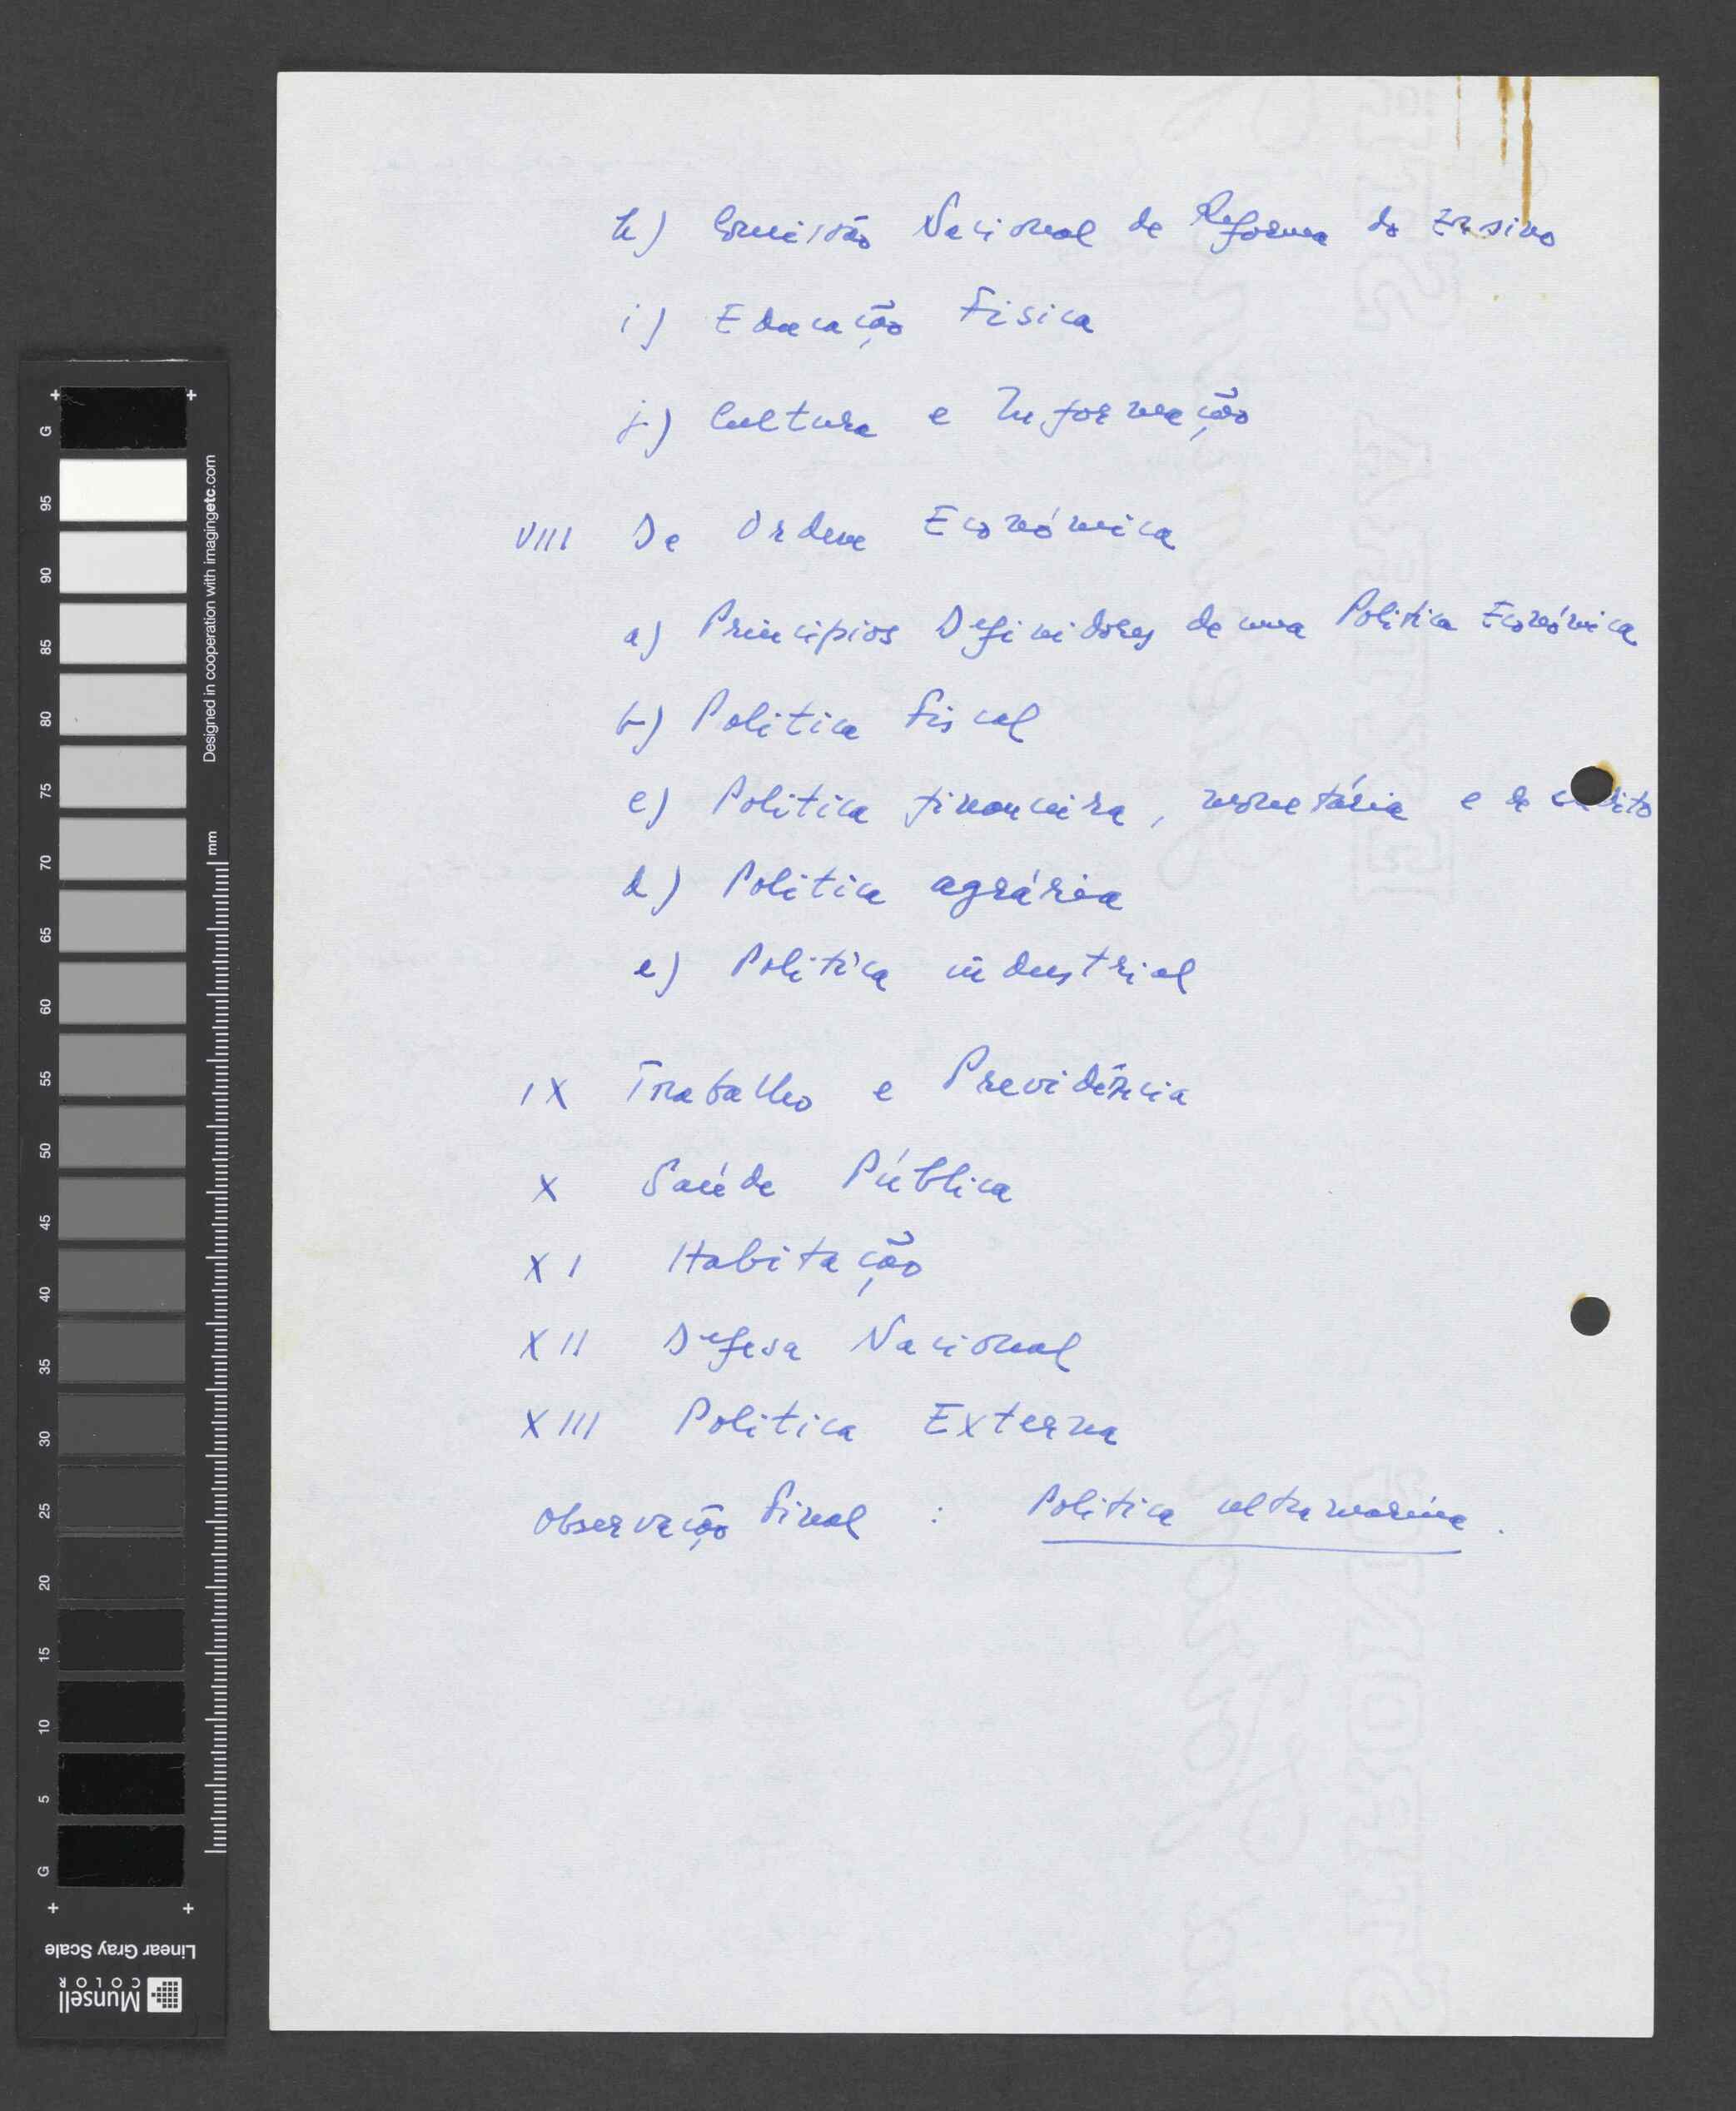 h) Comissão Nacional de Reforma do Ensino
i) Educação Fisica
j) Cultura e Informação
VIII Da Ordem Económica
a) Principios Definidores de uma Politica Económica
b) Politica fiscal
c) Politica financeira, monetária e de crédito
d) Politica agrária
e) Politica industrial
IX Trabalho e Previdência
X Saúde Pública
XI Habitação
XII Defesa Nacional
XIII Politica Externa
Observação final : Politica ultramarina.
G
95
90
85
80
75
70
65
60
55
50
45
40
35
30
25
20
15
10
5
G
Designed in cooperation with imagingetc.com
mm
Linear Gray Scale
Munsell
COLOR